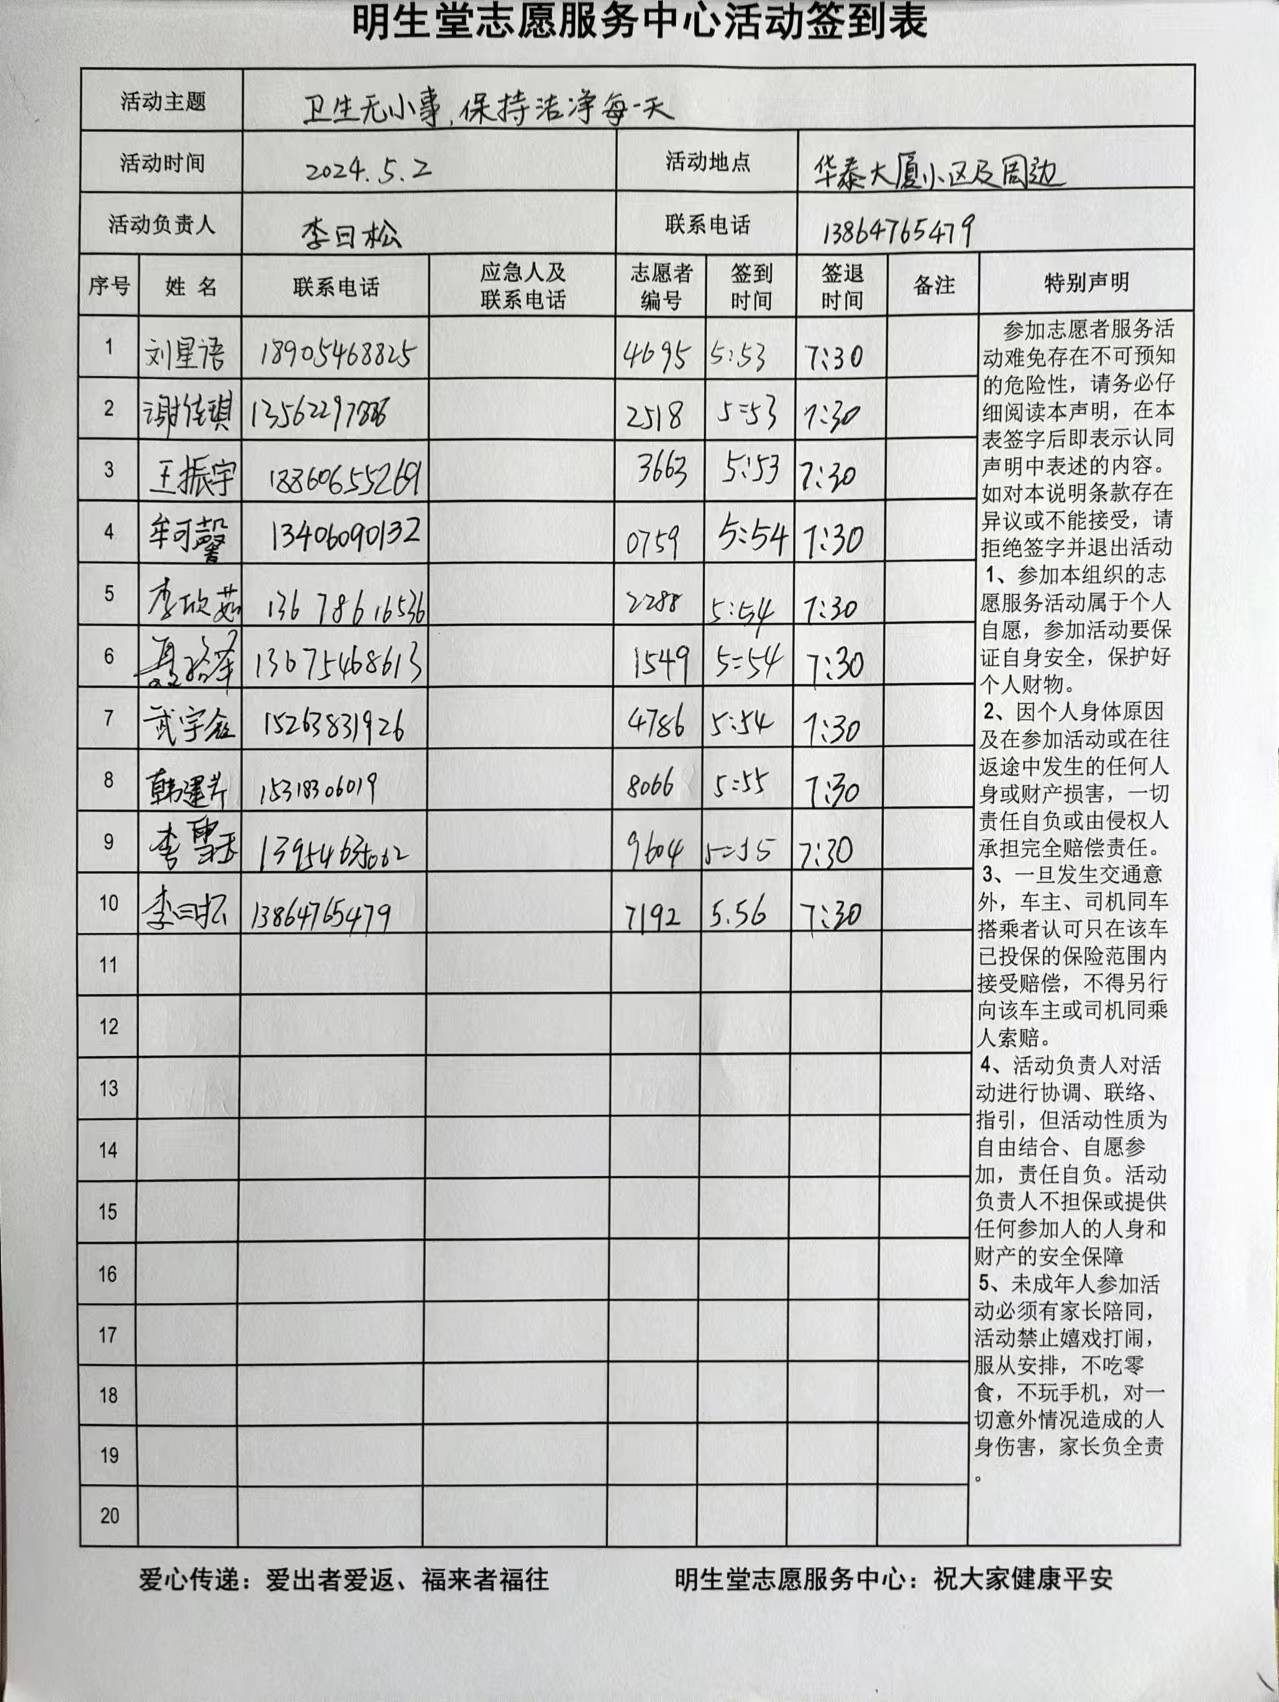 明生堂志愿服务中心活动签到表
活动主题 卫生无小事,保持洁净每一天
活动时间 2024.5.2 活动地点 华泰大厦小区及周边
活动负责人 李曰松 联系电话 13864765479
序号 姓 名 联系电话 应急人及联系电话 志愿者编号 签到时间 签退时间 备注 特别声明
1 刘星语 18905468825 4695 5:53 7:30
2 谢佳琪 2518 5:53 7:30
3 王振宇 18860655269 3663 5:53 7:30
4 牟可馨 13406090132 0759 5:54 7:30
5 李欣茹 13678616536 2288 5:54 7:30
6 13675468613 1549 5:54 7:30
7 武宇鑫 15263831926 4786 5:54 7:30
8 韩建芹 15318306019 8066 5:55 7:30
9 李雪玉 13954635062 9604 5:55 7:30
10 李曰松 13864765479 7192 5.56 7:30
11
12
13
14
15
16
17
18
19
20
参加志愿者服务活
动难免存在不可预知
的危险性，请务必仔
细阅读本声明，在本
表签字后即表示认同
声明中表述的内容。
如对本说明条款存在
异议或不能接受，请
拒绝签字并退出活动
1、参加本组织的志
愿服务活动属于个人
自愿，参加活动要保
证自身安全，保护好
个人财物。
2、因个人身体原因
及在参加活动或在往
返途中发生的任何人
身或财产损害，一切
责任自负或由侵权人
承担完全赔偿责任。
3、一旦发生交通意
外，车主、司机同车
搭乘者认可只在该车
已投保的保险范围内
接受赔偿，不得另行
向该车主或司机同乘
人索赔。
4、活动负责人对活
动进行协调、联络、
指引，但活动性质为
自由结合、自愿参
加，责任自负。活动
负责人不担保或提供
任何参加人的人身和
财产的安全保障
5、未成年人参加活
动必须有家长陪同，
活动禁止嬉戏打闹，
服从安排，不吃零
食，不玩手机，对一
切意外情况造成的人
身伤害，家长负全责
。
爱心传递：爱出者爱返、福来者福往 明生堂志愿服务中心：祝大家健康平安